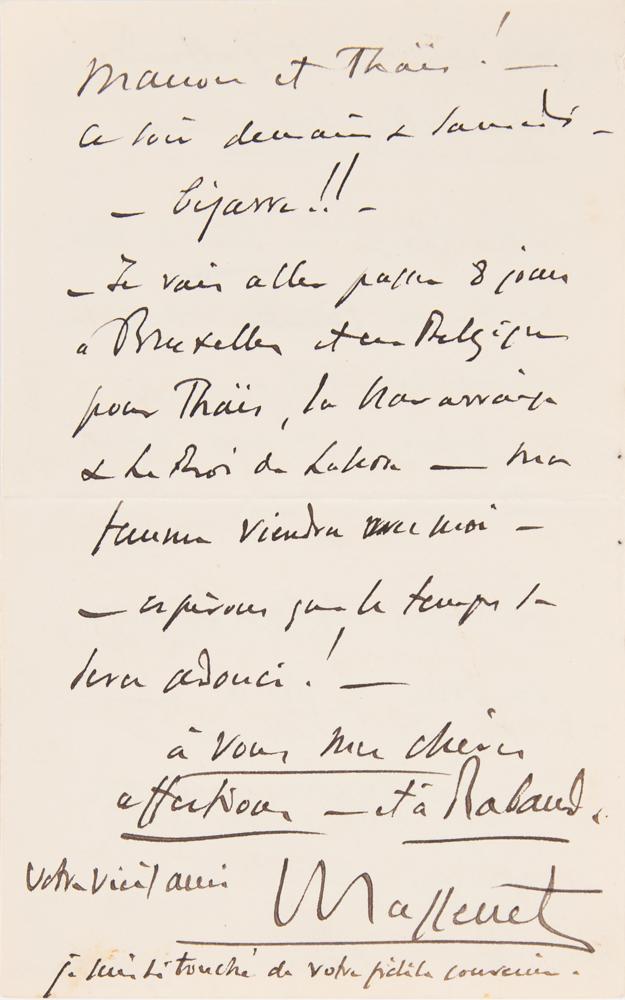 Manon et Thaïs ! —
ce soir demain & samedi –
– bizarre !! –
– Je vais aller passer 8 jours
à Bruxelles et en Belgique
pour Thaïs, la Navarraise
& Le Roi de Lahore — ma
femme viendra avec moi –
– espérons que le temps se
sera adouci ! —
à vous mes chères
affections — et à Rabaud.
votre vieil ami
Massenet
je suis si touché de votre fidèle souvenir.